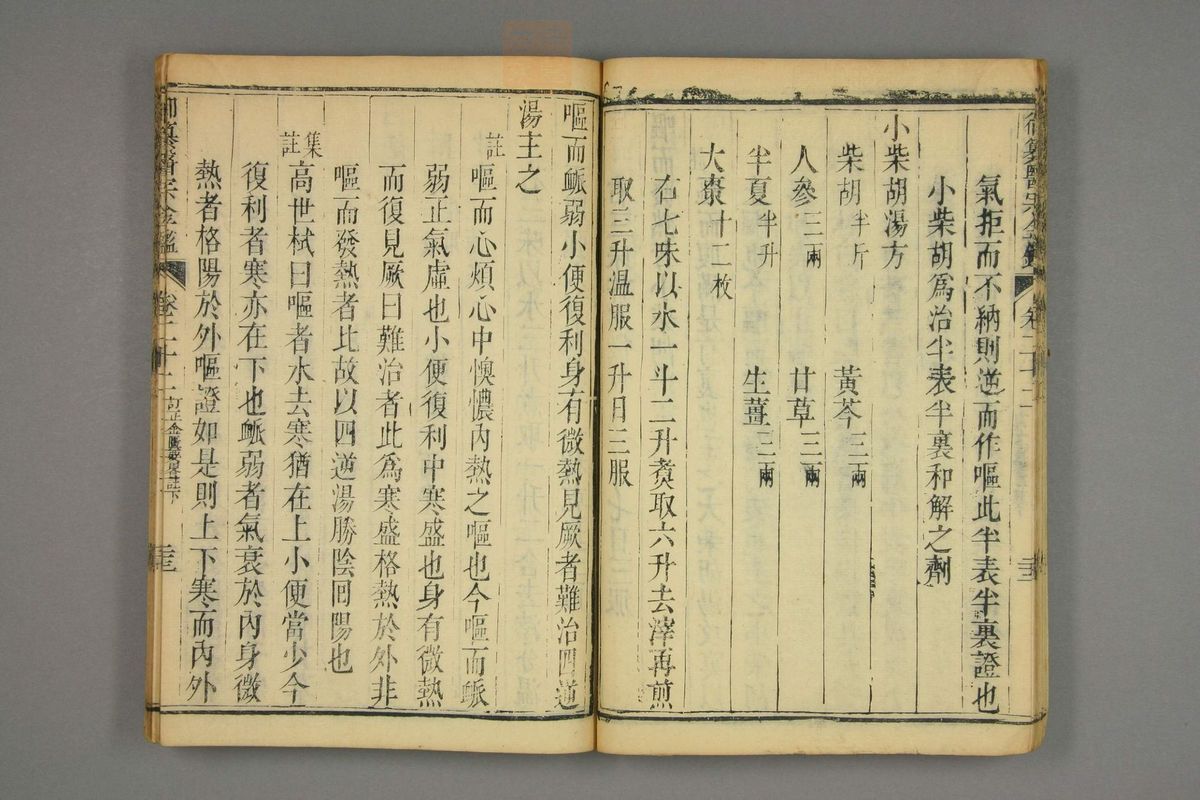 氣拒而不納則逆而作嘔此半表半裏證也
小柴胡爲治半表半裏和解之劑
小柴胡湯方
柴胡半斤 黃芩三兩
人參三兩 甘草三兩
半夏半升 生薑三兩
大棗十二枚
右七味以水一斗二升煑取六升去滓再煎
取三升温服一升日三服
嘔而脈弱小便復利身有微熱見厥者難治四逆
湯主之
註 嘔而心煩心中懊憹內熱之嘔也今嘔而脈
弱正氣虛也小便復利中寒盛也身有微熱
而復見厥曰難治者此爲寒盛格熱於外非
嘔而發熱者比故以四逆湯勝陰回陽也
集註 高世栻曰嘔者水去寒猶在上小便當少今
復利者寒亦在下也脈弱者氣衰於內身微
熱者格陽於外嘔證如是則上下寒而內外
御纂醫宗金鑑 卷二十二